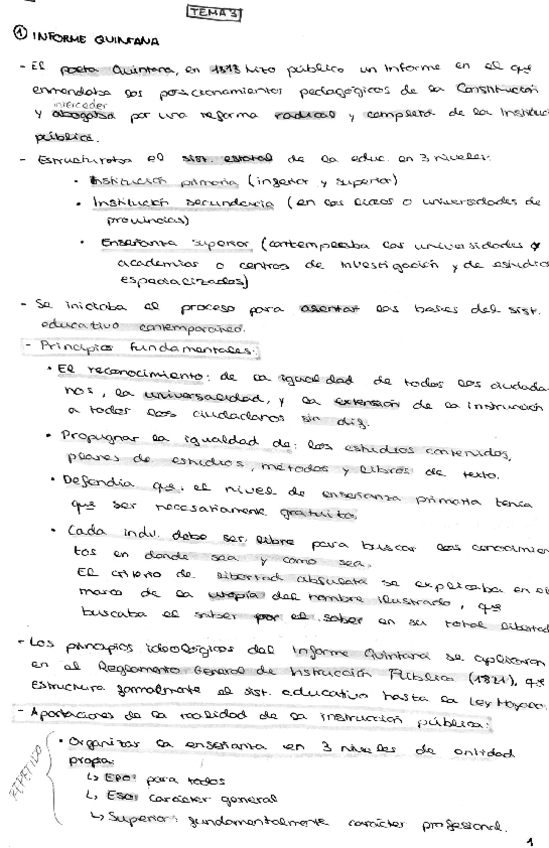 TEMA 3
① INFORME QUINTANA
- El poeta Quintana, en 1813 hizo público un Informe en el que
enmendaba los posicionamientos pedagógicos de la Constitución
interceder
y abogaba por una reforma radical y completa de la Instrucc
pública.
- Estructuraba el sist. estatal de la educ. en 3 niveles:
• Institución primaria (inferior y superior)
• Institución secundaria (en los liceos o universidades de
provincias)
• Enseñanza superior (contemplaba las universidades y
academias o centros de investigación y de estudios
especializados)
- Se iniciaba el proceso para asentar las bases del sist.
educativo contemporáneo.
- Principios fundamentales:
• El reconocimiento: de la igualdad de todos los ciudada-
nos, la universalidad, y la extensión de la instrucción
a todos los ciudadanos sin dis.
• Propugnar la igualdad de: los estudios contenidos,
planes de estudios, métodos y libros de texto.
• Defendía que: el nivel de enseñanza primaria tenía
que ser necesariamente gratuito.
• Cada indv. debe ser libre para buscar los conocimien-
tos en donde sea y como sea.
El criterio de libertad absoluta se explicaba en el
marco de la utopía del hombre ilustrado, que
buscaba el saber por el saber en su total libertad
- Los principios ideológicos del Informe Quintana se aplicaron
en el Reglamento General de Instrucción Pública (1821), que
estructura formalmente el sist. educativo hasta la Ley Moyano.
- Aportaciones de la realidad de la instrucción pública:
REPETIDO
• Organizar la enseñanza en 3 niveles de entidad
propia:
↳ EPO: para todos
↳ ESO: carácter general
↳ Superior: fundamentalmente carácter profesional.
1